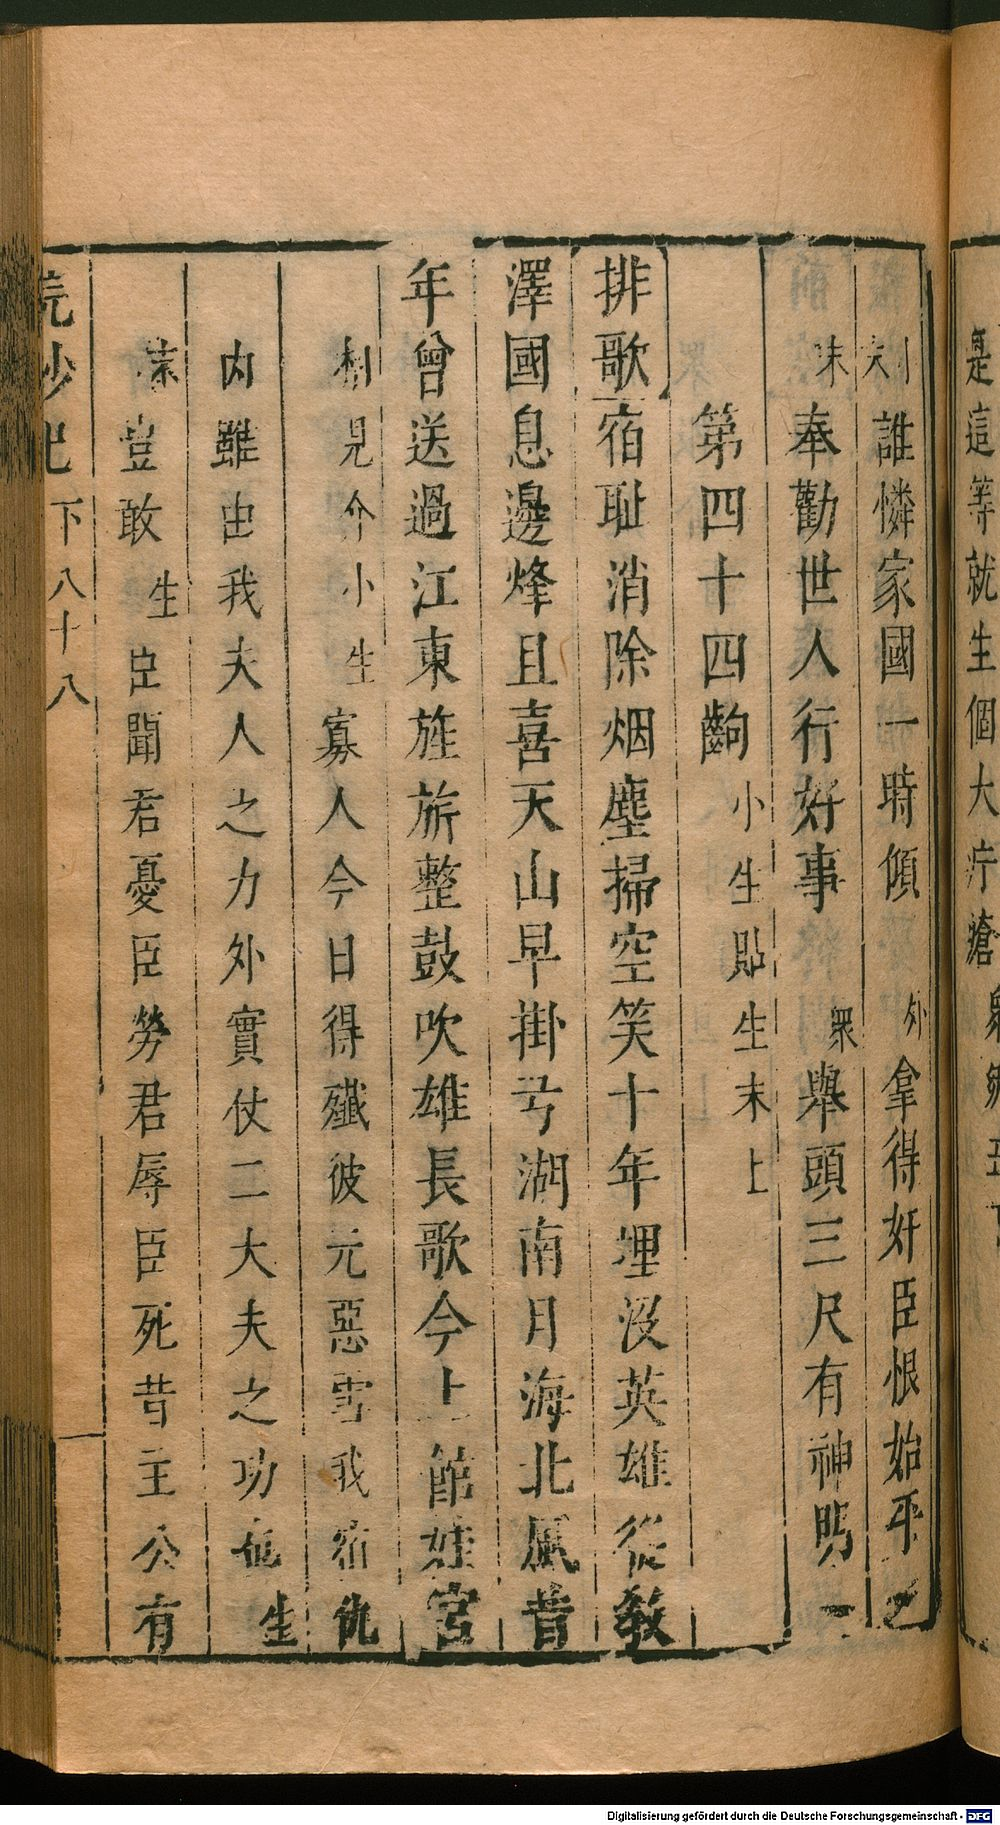 是這等就生個大疔瘡
誰憐家國一時傾 外 拿得奸臣恨始平
末 奉勸世人行好事 衆 舉頭三尺有神明
第四十四齣 小生貼生末上
排歌 宿耻消除烟塵掃空笑十年埋没英雄從教
澤國息邊烽且喜天山早掛弓湖南月海北風昔
年曾送過江東旌旂整鼓吹雄長歌今上館娃宮
相見介 小生 寡人今日得殲彼元惡雪我宿仇
内雖由我夫人之力外實仗二大夫之功 生
豈敢 生 臣聞君憂臣勞君辱臣死昔主公有
浣紗巳 下 八十八
Digitalisierung gefördert durch die Deutsche Forschungsgemeinschaft - DFG